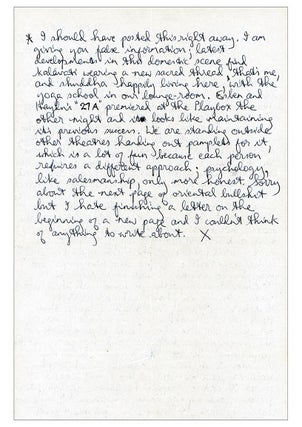 * I should have posted this right away. I am
giving you false information; latest
developments in this domestic scene find
Kalavati wearing a new sacred thread, that's me,
and Shuddha happily living here, with the
yoga school in our lounge-room. and
"27A" premiered at the Playbox the
other night and looks like maintaining
its previous success. We are standing outside
other theatres handing out pamplets for it,
which is a lot of fun because each person
requires a different approach; psychology,
like salesmanship, only more honest. Sorry
about the next page of oriental bullshit
but I hate finishing a letter on the
beginning of a new page and I couldn't think
of anything to write about. X